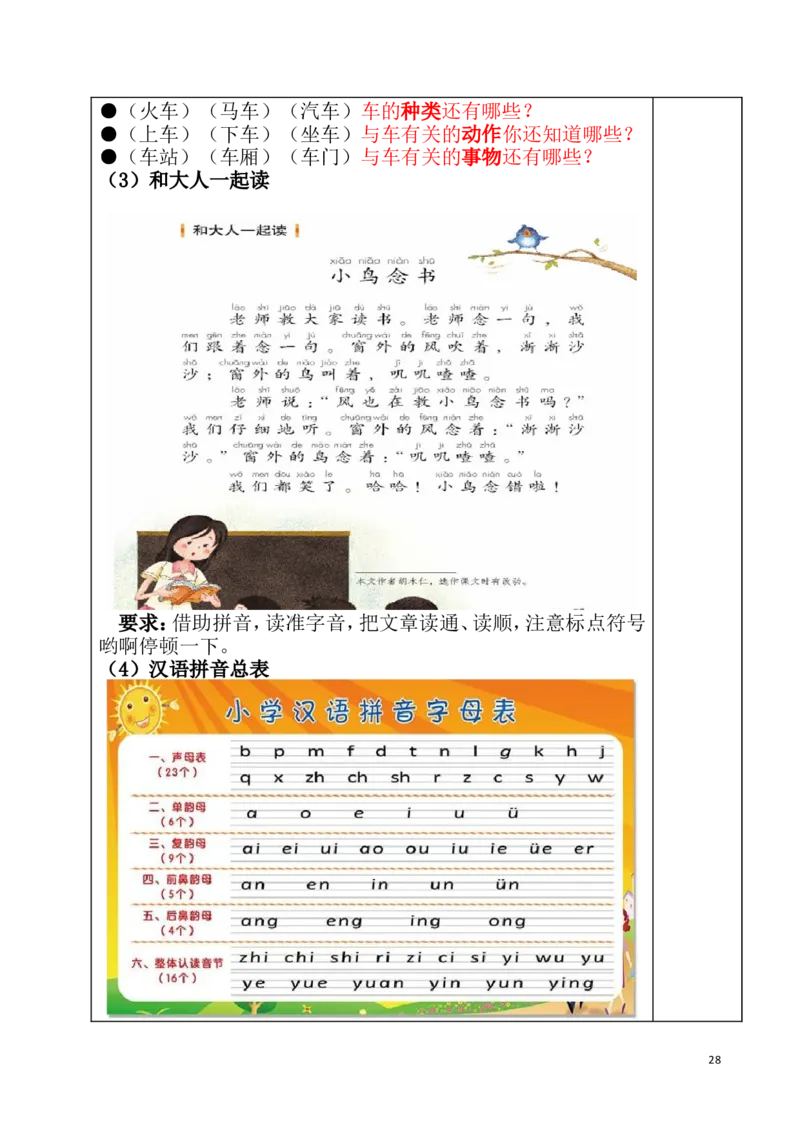 ●（火车）（马车）（汽车）车的种类还有哪些？
●（上车）（下车）（坐车）与车有关的动作你还知道哪些？
●（车站）（车厢）（车门）与车有关的事物还有哪些？
（3）和大人一起读
和大人一起读
xiǎo niǎo niàn shū
小鸟念书
lǎo shī jiāo dà jiā dú shū lǎo shī niàn yí jù wǒ
老师教大家读书。老师念一句，我
men gēn zhe niàn yí jù chuāng wài de fēng chuī zhe xī xī shā
们跟着念一句。窗外的风吹着，淅淅沙
shā chuāng wài de niǎo jiào zhe jī jī zhā zhā
沙；窗外的鸟叫着，叽叽喳喳。
lǎo shī shuō fēng yě zài jiāo xiǎo niǎo niàn shū ma
老师说：“风也在教小鸟念书吗？”
wǒ men zǐ xì de tīng chuāng wài de fēng niàn zhe xī xī shā
我们仔细地听。窗外的风念着：“淅淅沙
shā chuāng wài de niǎo niàn zhe jī jī zhā zhā
沙。”窗外的鸟念着：“叽叽喳喳。”
wǒ men dōu xiào le hā hā xiǎo niǎo niàn cuò la
我们都笑了。哈哈！小鸟念错啦！
本文作者胡木仁，选作课文时有改动。
要求：借助拼音，读准字音，把文章读通、读顺，注意标点符号
哟啊停顿一下。
（4）汉语拼音总表
小学汉语拼音字母表
一、声母表
（23个）
b p m f d t n l g k h j
q x zh ch sh r z c s y w
二、单韵母
（6个）
a o e i u ü
三、复韵母
（9个）
ai ei ui ao ou iu ie üe er
四、前鼻韵母
（5个）
an en in un ün
五、后鼻韵母
（4个）
ang eng ing ong
六、整体认读音节
（16个）
zhi chi shi ri zi ci si yi wu yu
ye yue yuan yin yun ying
28